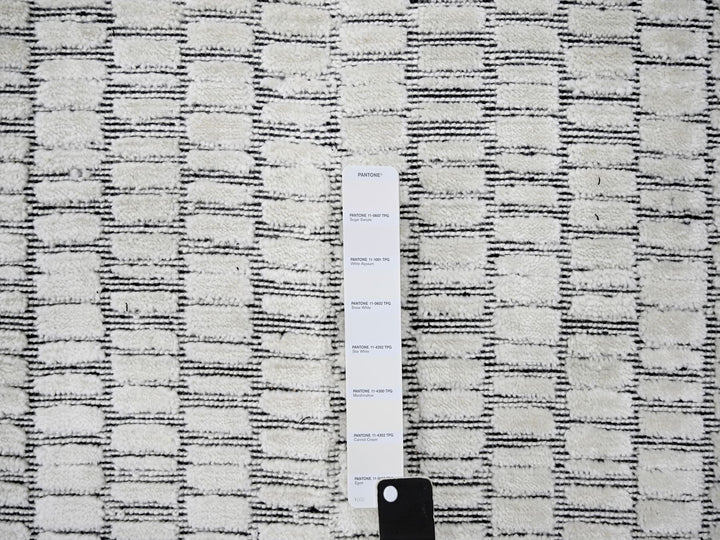 PANTONE®
PANTONE 11-0607 TPG
Sugar Swizzle
PANTONE 11-1001 TPG
White Alyssum
PANTONE 11-0602 TPG
Snow White
PANTONE 11-4202 TPG
Star White
PANTONE 11-4300 TPG
Marshmallow
PANTONE 11-4302 TPG
Cannoli Cream
PANTONE
Egret